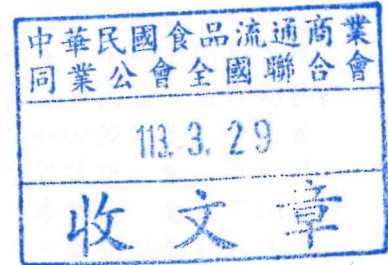 中華民國食品流通商業
同業公會全國聯合會
113. 3. 29
收文章